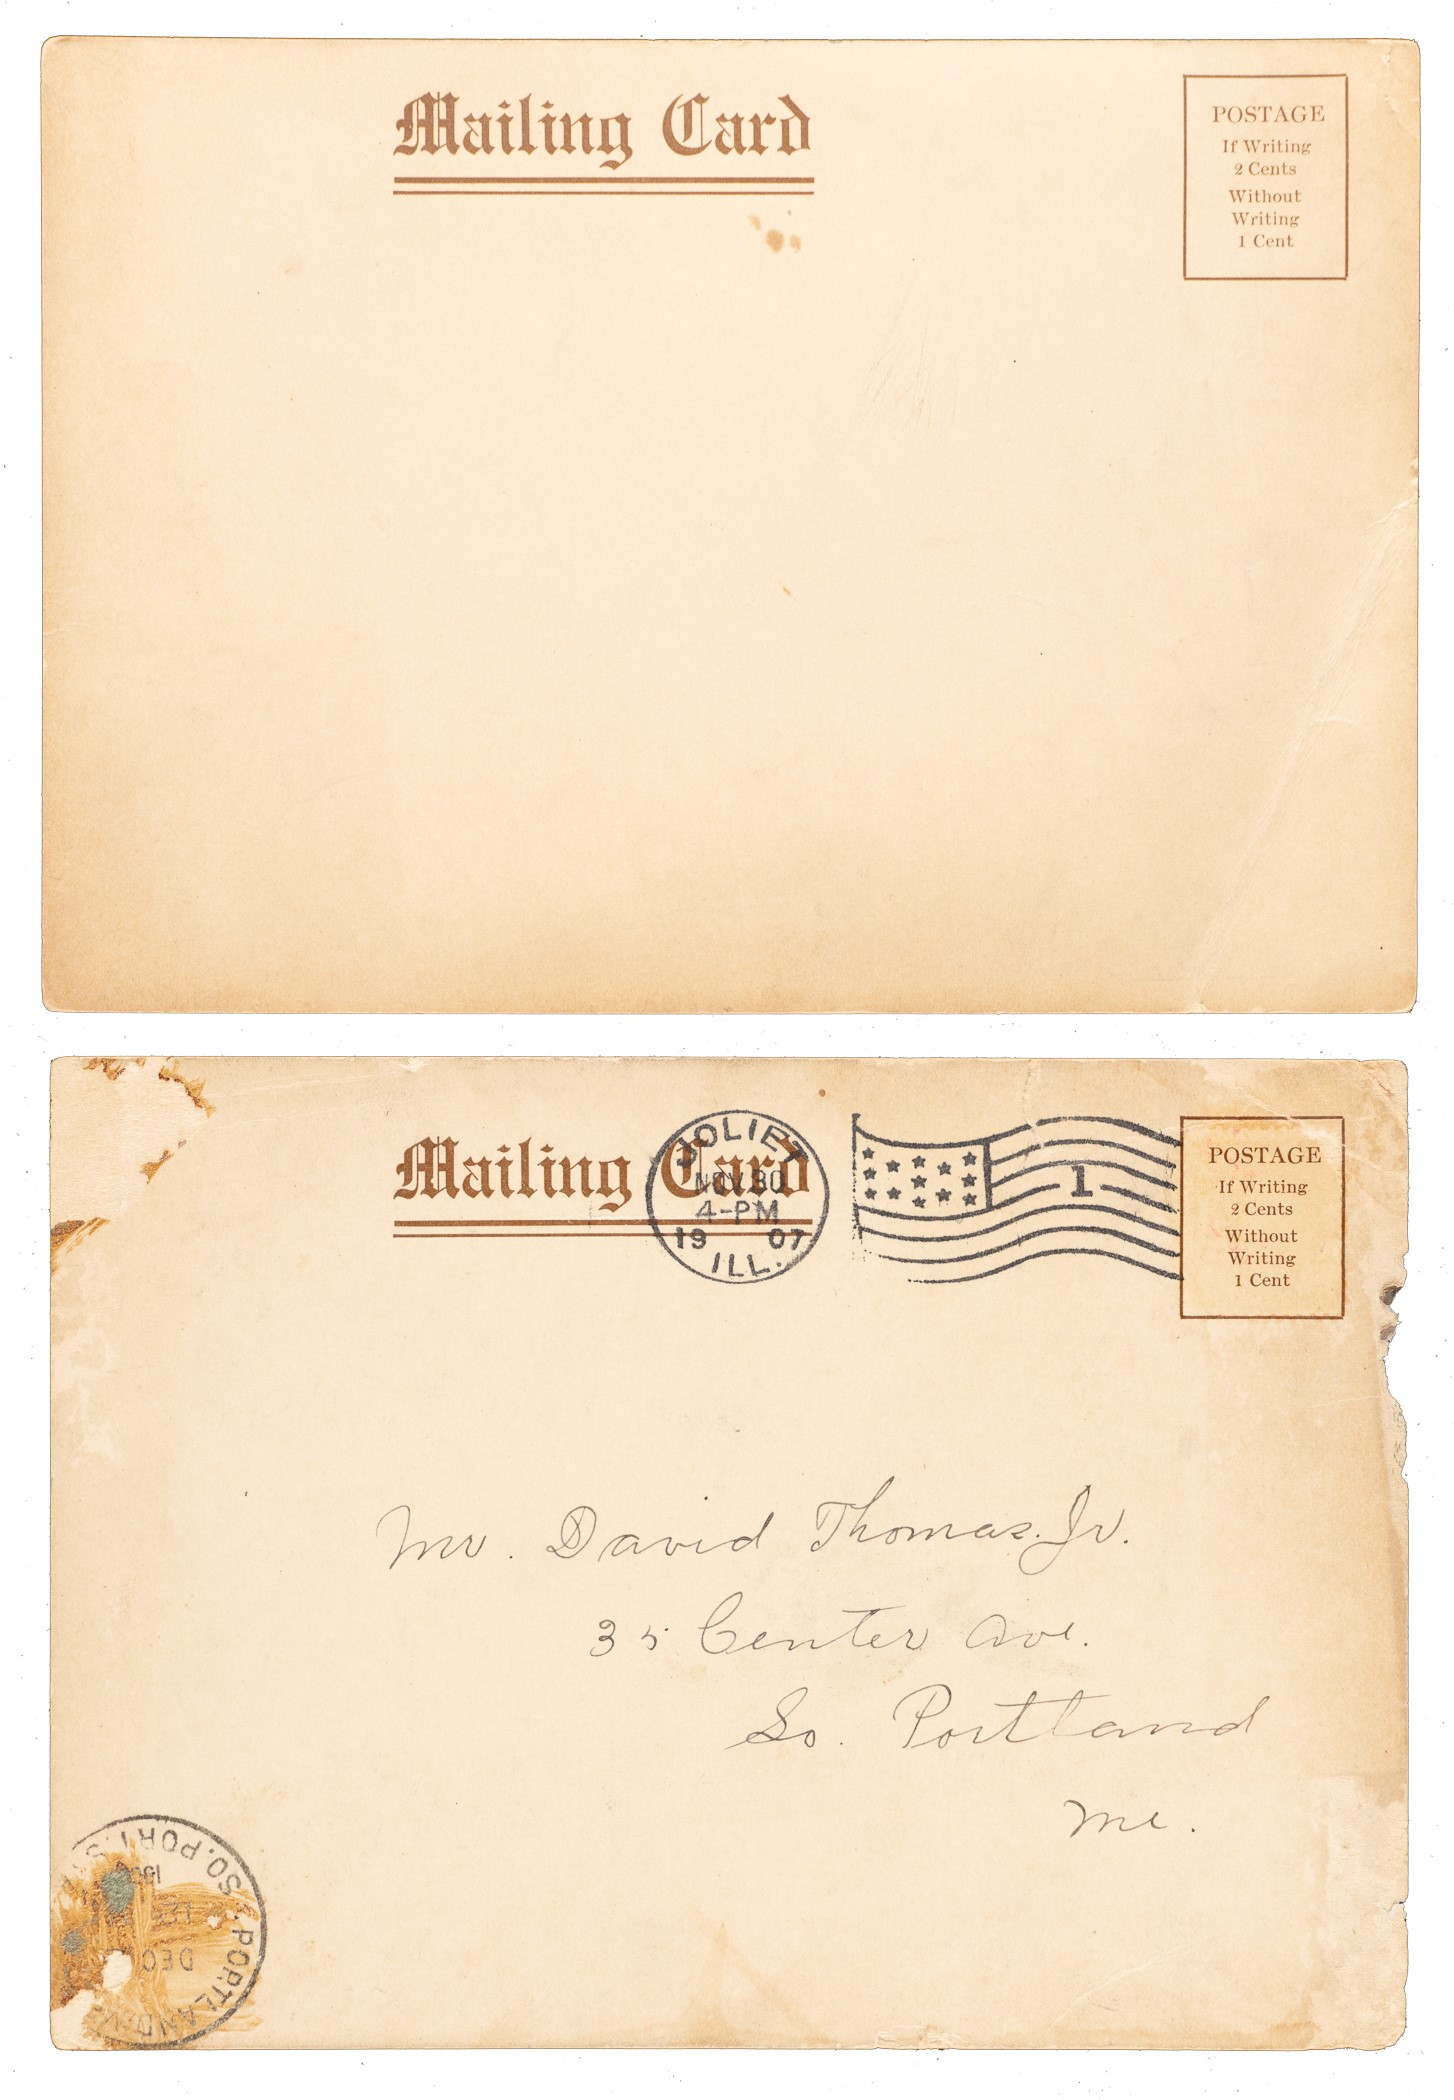 Mailing Card
POSTAGE
If Writing
2 Cents
Without
Writing
1 Cent
Mailing Card
JOLIET
NOV 30
4-PM
1907
ILL.
1
POSTAGE
If Writing
2 Cents
Without
Writing
1 Cent
Mr. David Thomas. Jr.
35 Center Ave.
So. Portland
Me.
SO. PORT.
DEC
PORTLAND